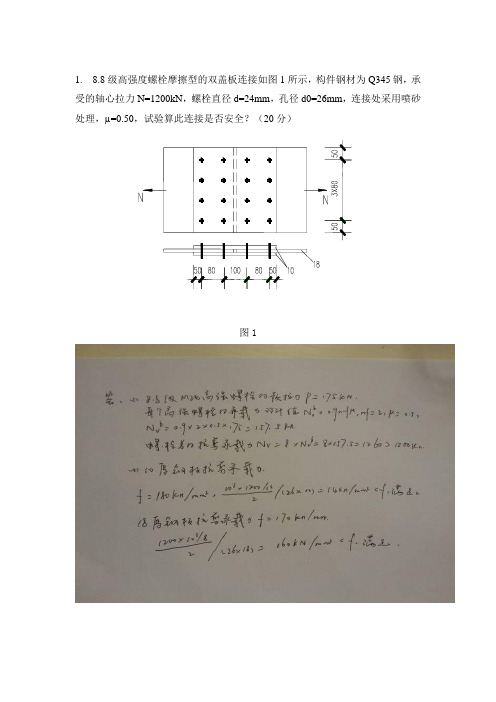 1. 8.8级高强度螺栓摩擦型的双盖板连接如图1所示，构件钢材为Q345钢，承
受的轴心拉力N=1200kN，螺栓直径d=24mm，孔径d0=26mm，连接处采用喷砂
处理，μ=0.50，试验算此连接是否安全？（20分）
50
3X80
50
N
N
18
10
50 80 100 80 50
图1
答、(1) 8.8级M24高强螺栓的预拉力 P=175KN.
每个高强螺栓的承载力设计值 Nvb=0.9nfμP, nf=2, μ=0.5,
Nvb=0.9×2×0.5×175=157.5KN
螺栓群的抗剪承载力 Nv=8×Nvb=8×157.5=1260>1200KN
10厚钢板抗剪承载力
f=180KN/mm², /(26×10)=140KN/mm²<f.满足.
18厚钢板抗剪承载力 f=170KN/mm.
1200×10³/8 / 2 /(26×18)=160KN/mm²<f.满足.